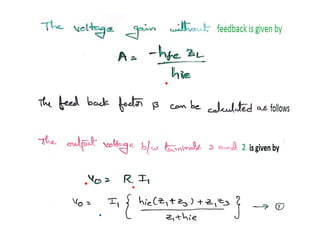 The voltage gain without feedback is given by
A = -hfe ZL / hie
The feed back factor β can be calculated as follows
The output voltage b/w terminals 3 and 2 is given by
Vo = R I1
Vo = I1 { hie(z1+z3) + z1z3 / z1+hie } → ①